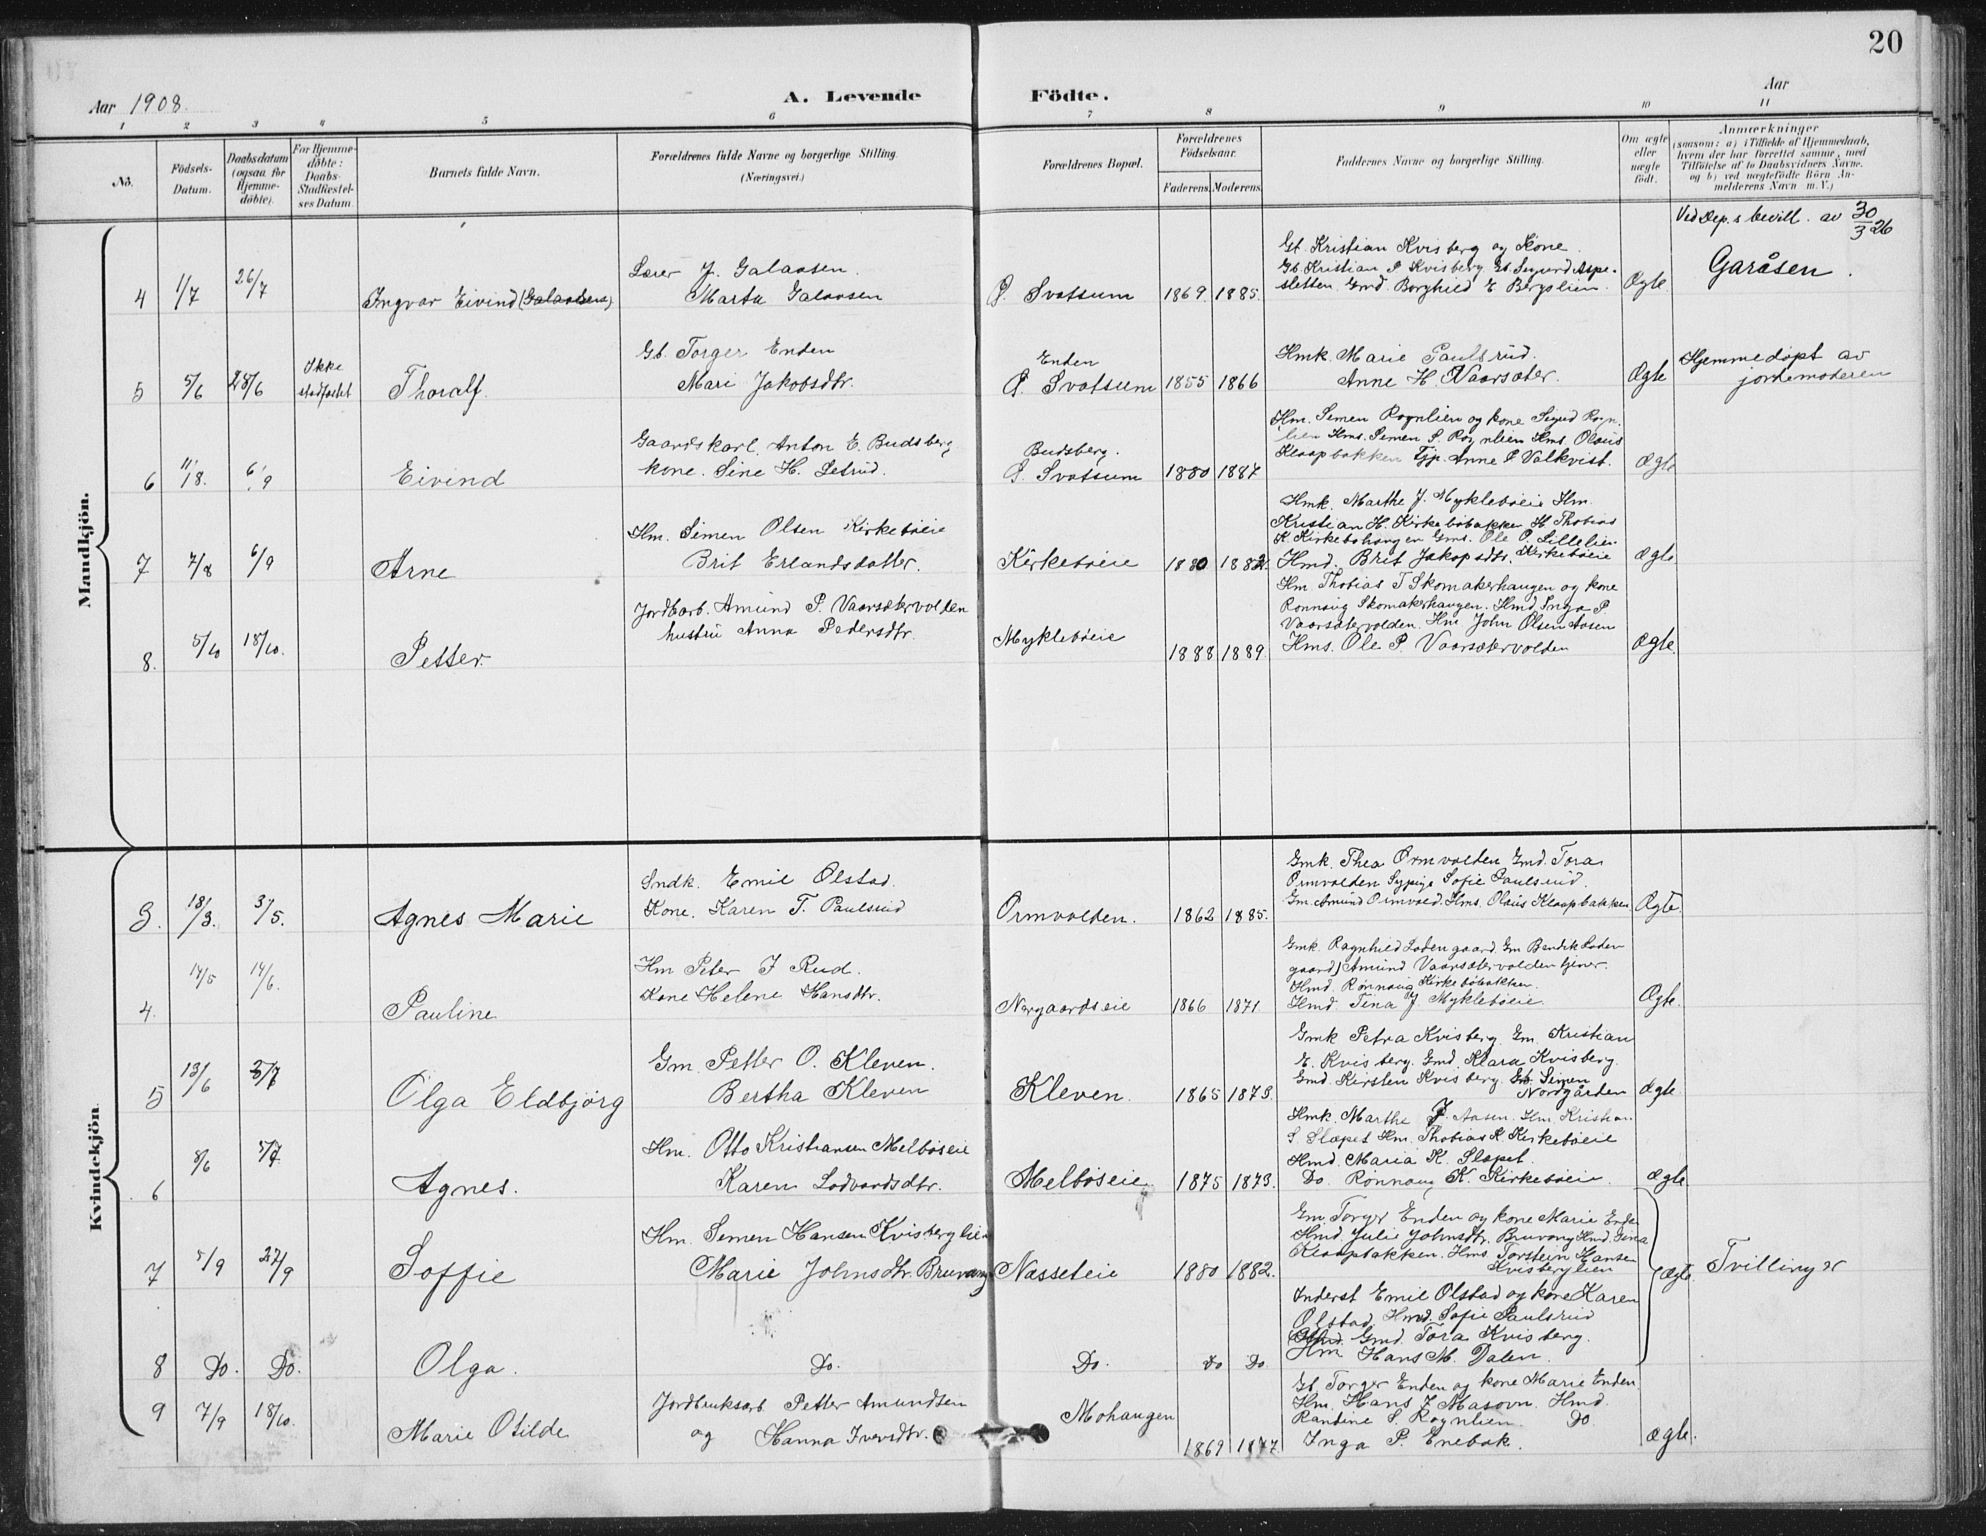 20
Aar 1908.
A. Levende Födte.
Aar
1 2 3 4 5 6 7 8 9 10 11
No.
Födsels-
Datum.
Daabsdatum
(ogsaa for
Hjemme-
döbte).
For Hjemme-
döbte:
Daabs-
Stadfæstel-
ses Datum.
Barnets fulde Navn.
Forældrenes fulde Navne og borgerlige Stilling.
(Næringsvei.)
Forældrenes Bopæl.
Forældrenes
Födselsaar.
Faderens. Moderens.
Faddernes Navne og borgerlige Stilling.
Om ægte
eller
uægte
födt.
Anmærkninger
(saasom: a) i Tilfælde af Hjemmedaab,
hvem der har forrettet samme, med
Tilföielse af to Daabsvidners Navne.
og b) ved uægtefödte Börn An-
melderens Navn m. V.)
Mandkjön.
4 1/7 26/7 Ingvar Eivind (Galaasen)
Lærer J. Galaasen.
Marta Galaasen
P. Svatsum 1869. 1885.
Gb. Kristian Kvisberg og Kone.
Gb. Kristian P Kvisberg Gb. Sigurd Aspe-
sletten Gmd Borghild E Bergslien.
Ægte
Ved Dep.s bevill. av 30/3 26
Garåsen.
5 5/6 28/6 Ikke
stadfæstet
Thoralf.
Gb. Torger Enden
Mari Jakobsdtr.
Enden
P. Svatsum 1855 1866
Hmk. Marie Paulsrud.
Anne H. Vaarsæter.
Ægte
Hjemmedøpt av
jordemoderen
6 11/8. 6/9 Eivind
Gaardskarl. Anton E. Budsberg
kone. Sine H. Setrud.
Budsberg.
P. Svatsum 1880 1887
Hm. Semen Rognlien og kone Sigrid Rogn-
lien Hms. Semen S. Rognlien Hms. Olaus
Klaapbakken Tjp. Anne P Valkvist.
Ægte
7 7/8 6/9 Arne
Hm. Simen Olsen Kirkebøeie
Brit Erlandsdatter.
Kirkebøeie 1880 1882.
Hmk. Marthe J. Myklebøeie Hm.
Kristian H. Kirkebøbakken H. Thobias
K. Kirkebøhaugen Gms. Ole P. Lillelien
Hmd. Brit Jakopsdtr. Kirkebøeie
Ægte
8. 5/10 18/10. Petter.
Jordbarb. Amund P. Vaarsætervolden
hustru Anna Pedersdtr.
Myklebøeie 1888 1889.
Hm Thobias T Skomakerhaugen og kone
Rønnaug Skomakerhaugen. Hmd Inga P
Vaarsætervolden. Hm John Olsen Aasen
Hms. Ole P. Vaarsætervolden
Ægte.
Kvindekjön.
3. 18/3. 3/5. Agnes Marie
Sndk. Emil Olstad.
Kone. Karen T. Paulsrud
Ormvolden. 1862 1885.
Gmk. Thea Ormvolden Gmd. Tora
Ormvolden Sypige Sofie Paulsrud.
Gm. Amund Ormvold. Hms. Olaus Klaapbakken
Ægte.
4. 14/5 14/6. Pauline
Hm Peter J Rud.
Kone Helene Hansdtr.
Norgaardseie 1866 1871
Gmk. Ragnhild Lodengaard. Gm Bendik Loden
gaard) Amund Vaarsætervolden tjener.
Hmd. Rønnaug Kirkebøbakken.
Hmd. Tina J Myklebøeie
Ægte.
5 13/6 5/7 Olga Eldbjörg
Gm. Petter O. Kleven.
Bertha Kleven
Kleven. 1865 1873.
Gmk Petra Kvisberg. Gm. Kristian
E. Kvisberg. Gmd. Klara Kvisberg.
Gmd. Kirsten Kvisberg. Gb. Simen
Nordgården
Ægte.
6 8/6 5/7 Agnes.
Hm. Otto Kristiansen Melbøseie
Karen Lodvardsdtr.
Melbøseie 1875 1873.
Hmk. Marthe J. Aasen. Hm. Kristian
S. Slæpet Hm. Thobias K. Kirkebøeie
Hmd. Maria K. Slæpet.
Do. Rønnaug K. Kirkebøeie.
Ægte
7 5/9 27/9 Soffie
Hm. Semen Hansen Kvisberglien
Marie Johnsdtr. Bruvang
Næsseteie 1880 1882.
Gm. Torger Enden og kone Marie Enden
Hmd. Julie Johnsdtr. Bruvang Hmd. Gina
Klaapbakken. Hms. Torstein Hansen
Kvisberglien
Ægte
Tvillinger
8 Do. Do. Olga.
Do.
Do. Do Do.
Inderst Emil Olstad og kone Karen
Olstad Hmd. Sofie Paulsrud
Gmd. Tora Kvisberg.
Hm Hans M. Dalen.
9 7/9 18/10. Marie Otilde
Jordbruksarb Petter Amundsen
og Hanna Iversdtr.
Mohaugen
1869 1877.
Gb. Torger Enden og kone Marie Enden
Hm. Hans J Masovn. Hmd.
Randine S. Rognlien. Do.
Inga P. Enebak.
Ægte.